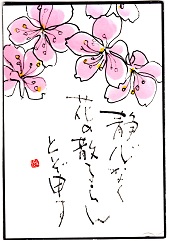 静心なく
花の散るらん
とぞ申す